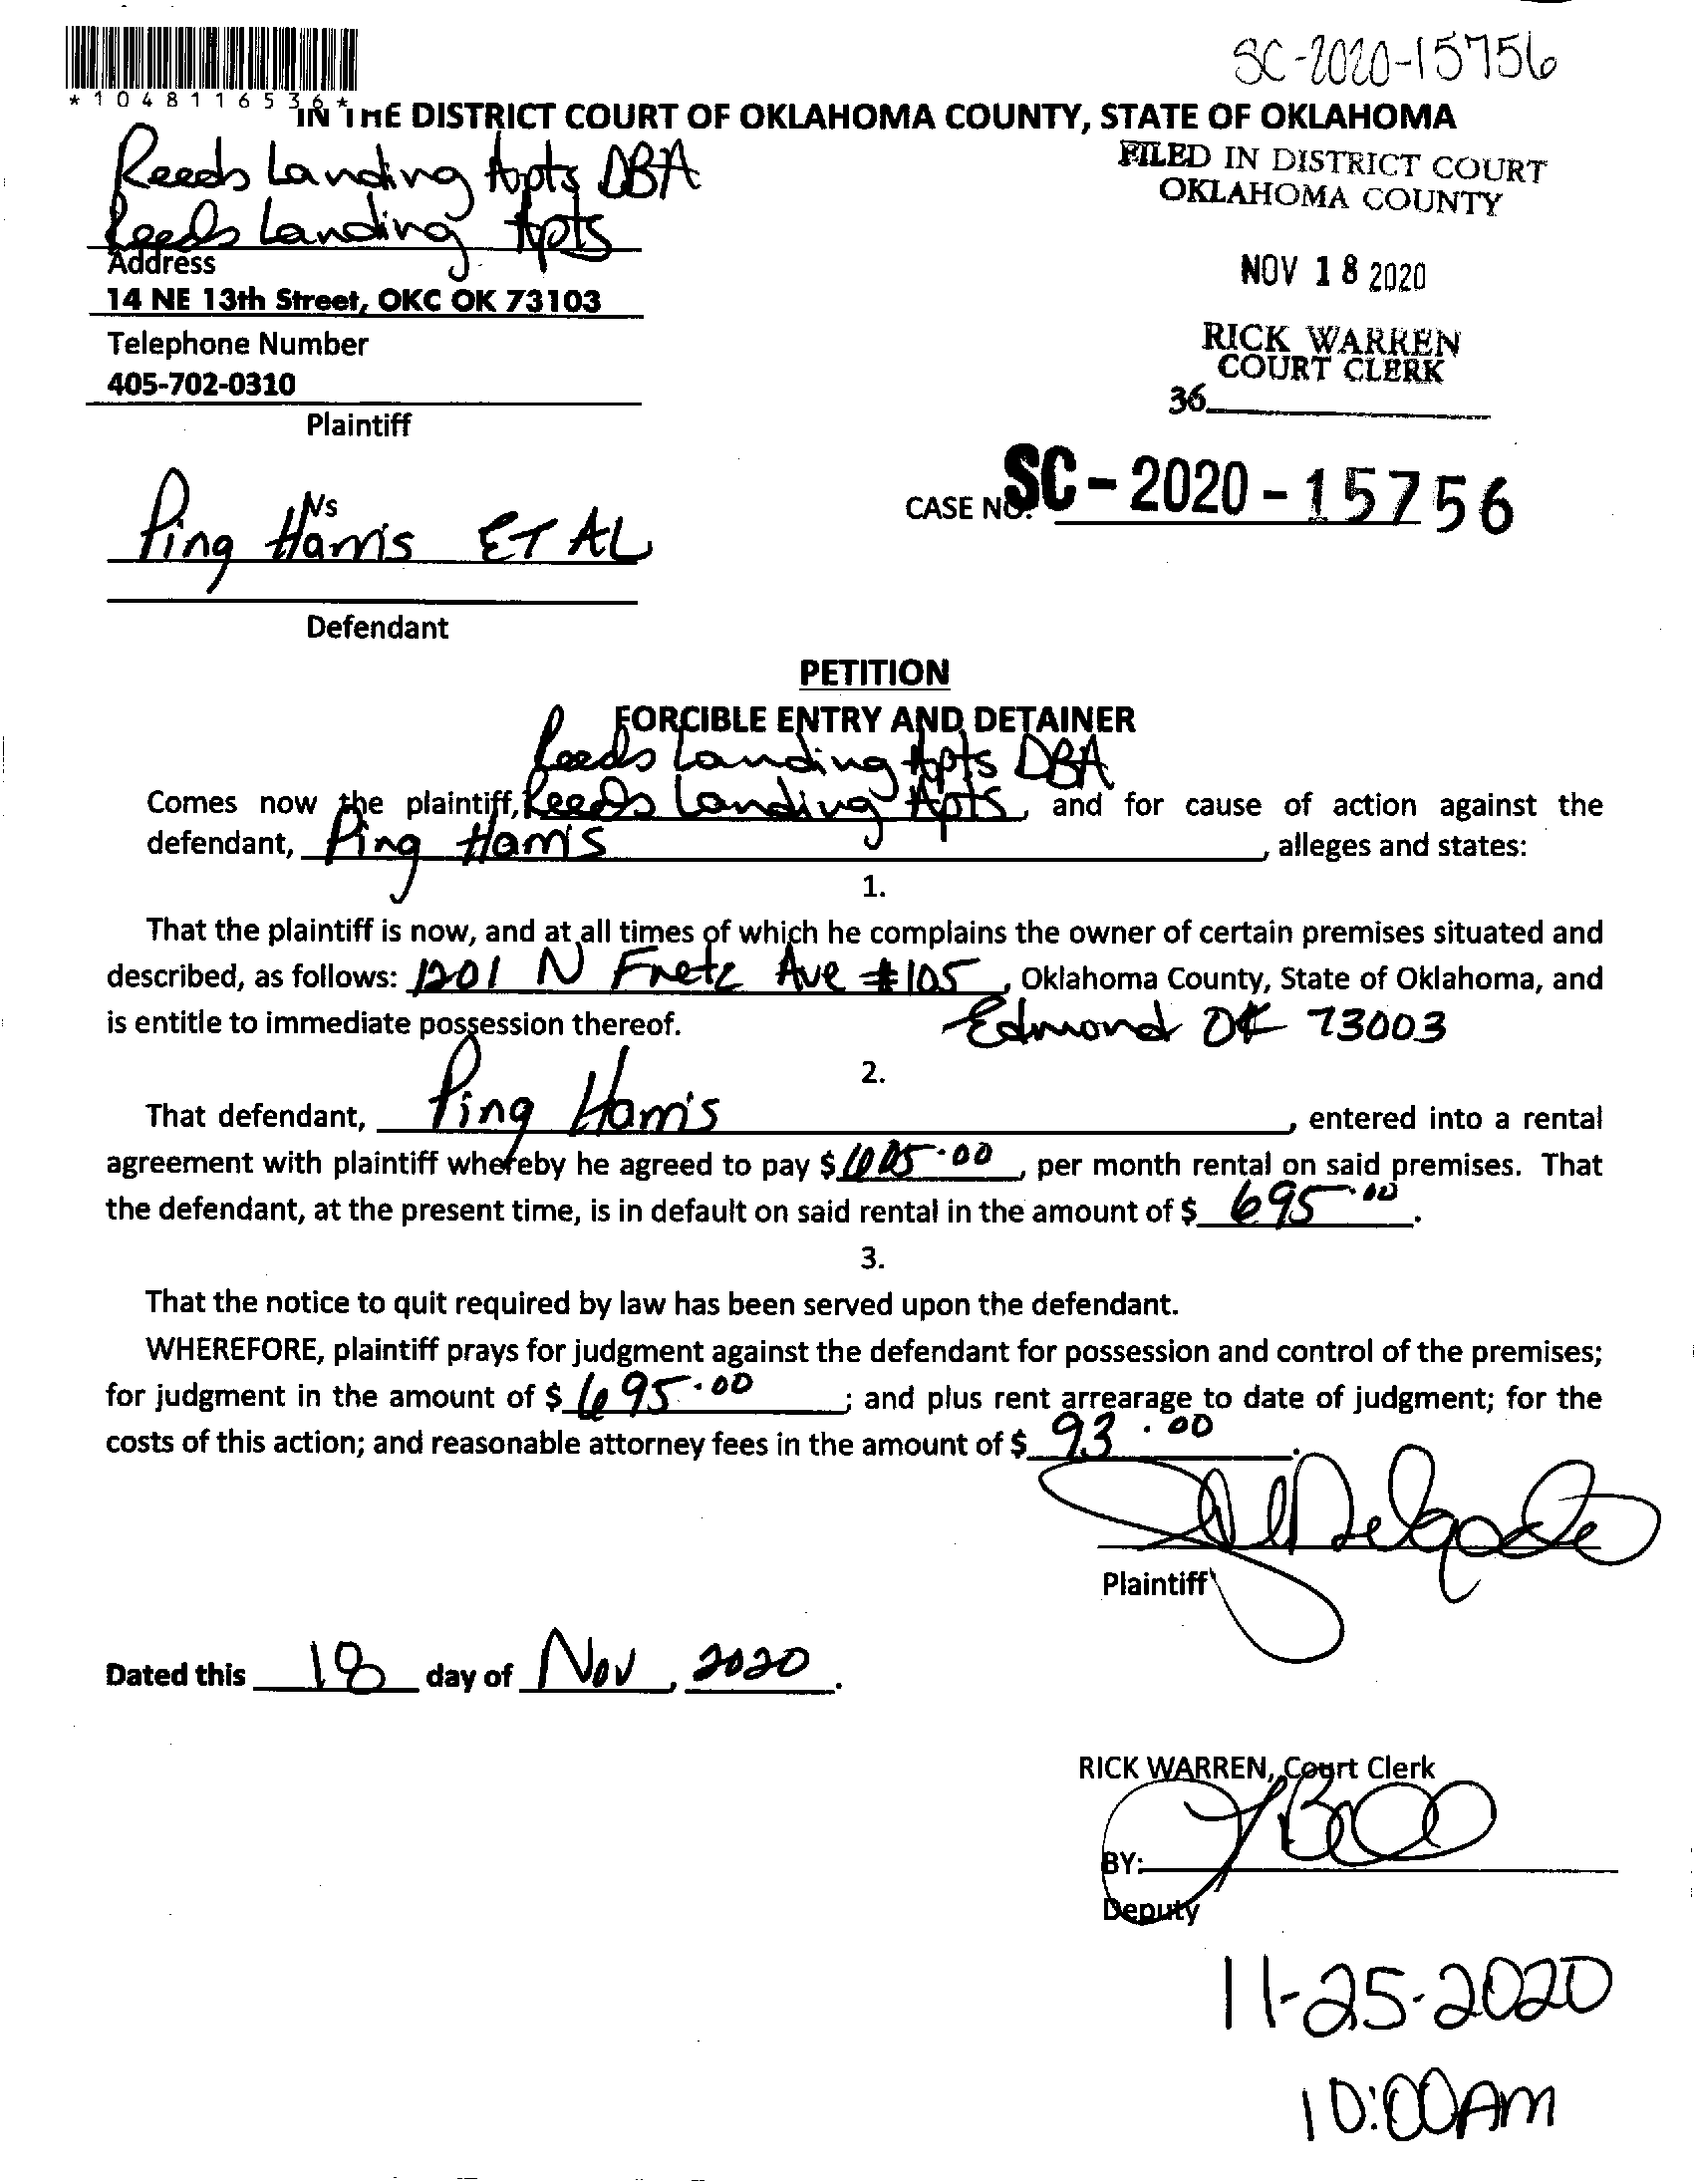 SC-2020-15756
*1048116536*
IN THE DISTRICT COURT OF OKLAHOMA COUNTY, STATE OF OKLAHOMA
Reeds Landing Apts DBA
Reeds Landing Apts
Address
14 NE 13th Street, OKC OK 73103
Telephone Number
405-702-0310
Plaintiff
FILED IN DISTRICT COURT
OKLAHOMA COUNTY
NOV 18 2020
RICK WARREN
COURT CLERK
36
Vs
Ping Harris ET AL
Defendant
CASE NO. SC-2020-15756
PETITION
FORCIBLE ENTRY AND DETAINER
Reeds Landing Apts DBA
Comes now the plaintiff, Reeds Landing Apts, and for cause of action against the
defendant, Ping Harris, alleges and states:
1.
That the plaintiff is now, and at all times of which he complains the owner of certain premises situated and
described, as follows: 1201 N Fretz Ave #105, Oklahoma County, State of Oklahoma, and
is entitle to immediate possession thereof. Edmond OK 73003
2.
That defendant, Ping Harris, entered into a rental
agreement with plaintiff whereby he agreed to pay $, per month rental on said premises. That
the defendant, at the present time, is in default on said rental in the amount of $ 695.00.
3.
That the notice to quit required by law has been served upon the defendant.
WHEREFORE, plaintiff prays for judgment against the defendant for possession and control of the premises;
for judgment in the amount of $ 695.00; and plus rent arrearage to date of judgment; for the
costs of this action; and reasonable attorney fees in the amount of $ 93.00.
Plaintiff
Dated this 18 day of Nov, 2020.
RICK WARREN, Court Clerk
BY:
Deputy
11-25-2020
10:00AM